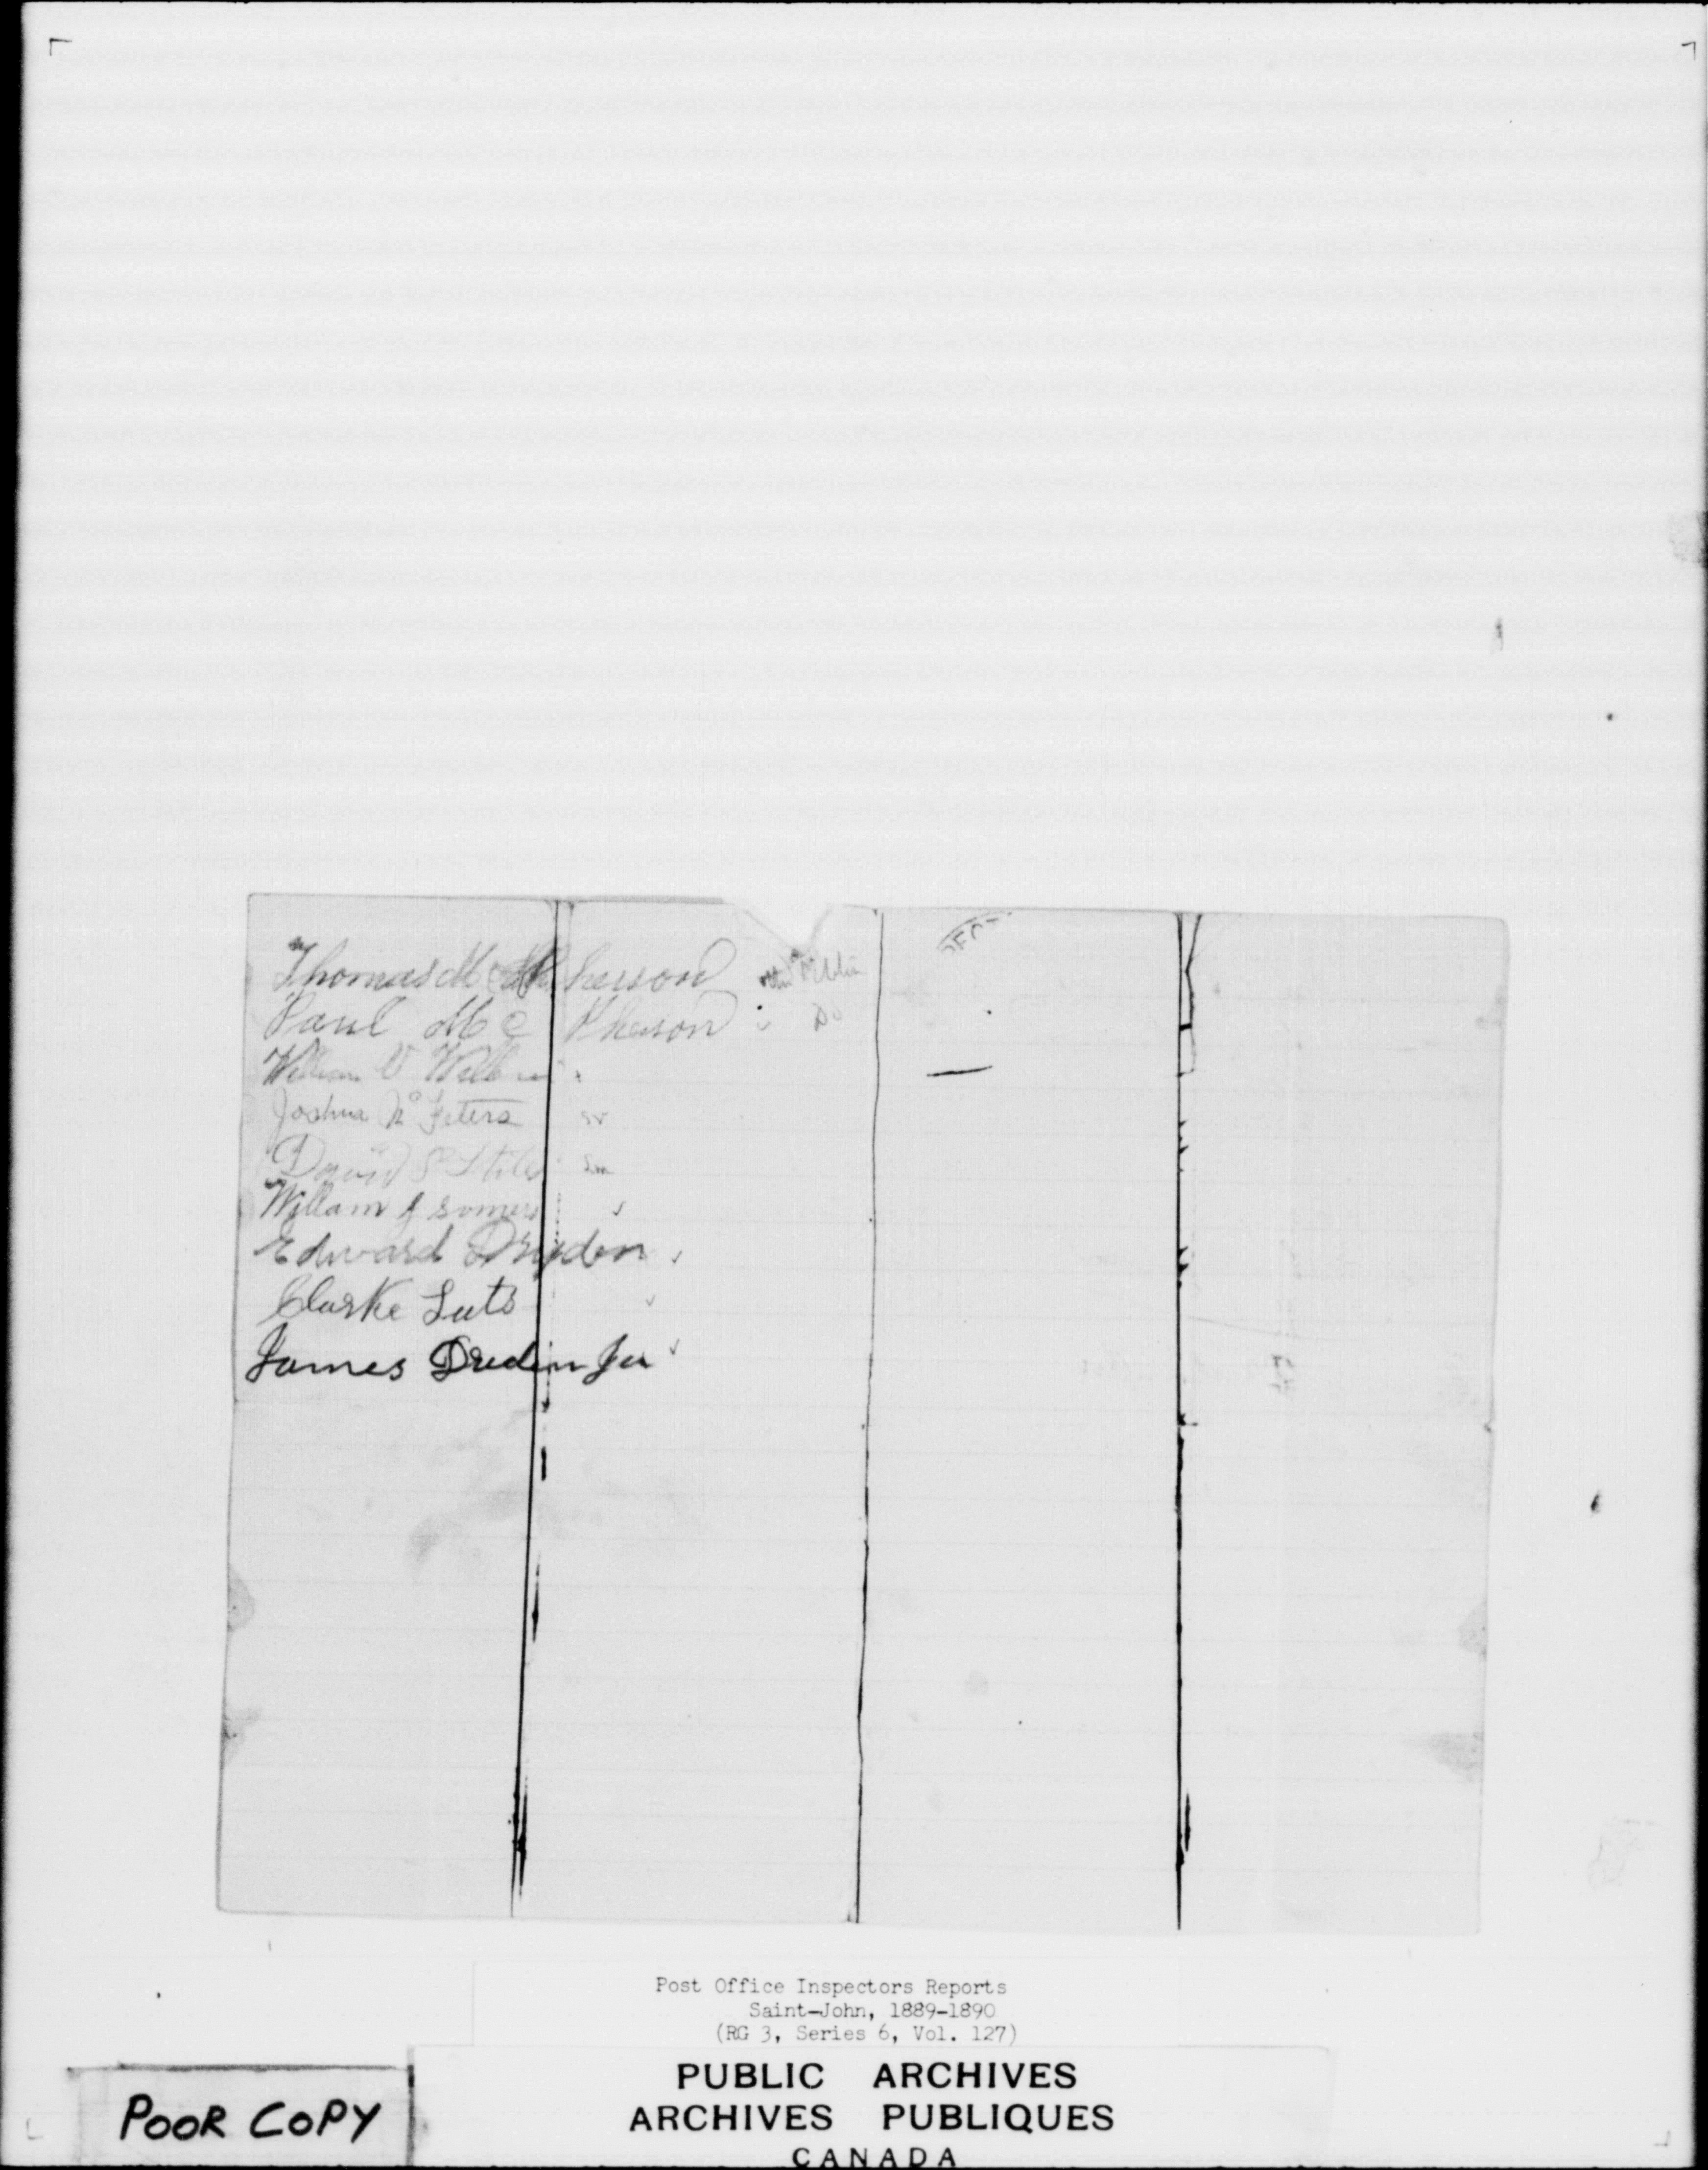 Thomas Mc Pherson
Paul Mc Pherson Do
William V
Joshua Peters
David S Stiles
Willam J somers
Edward Dryden
Clarke Luts
James Dreden Jur
Post Office Inspectors Reports
Saint-John, 1889-1890
(RG 3, Series 6, Vol. 127)
PUBLIC ARCHIVES
ARCHIVES PUBLIQUES
CANADA
POOR COPY